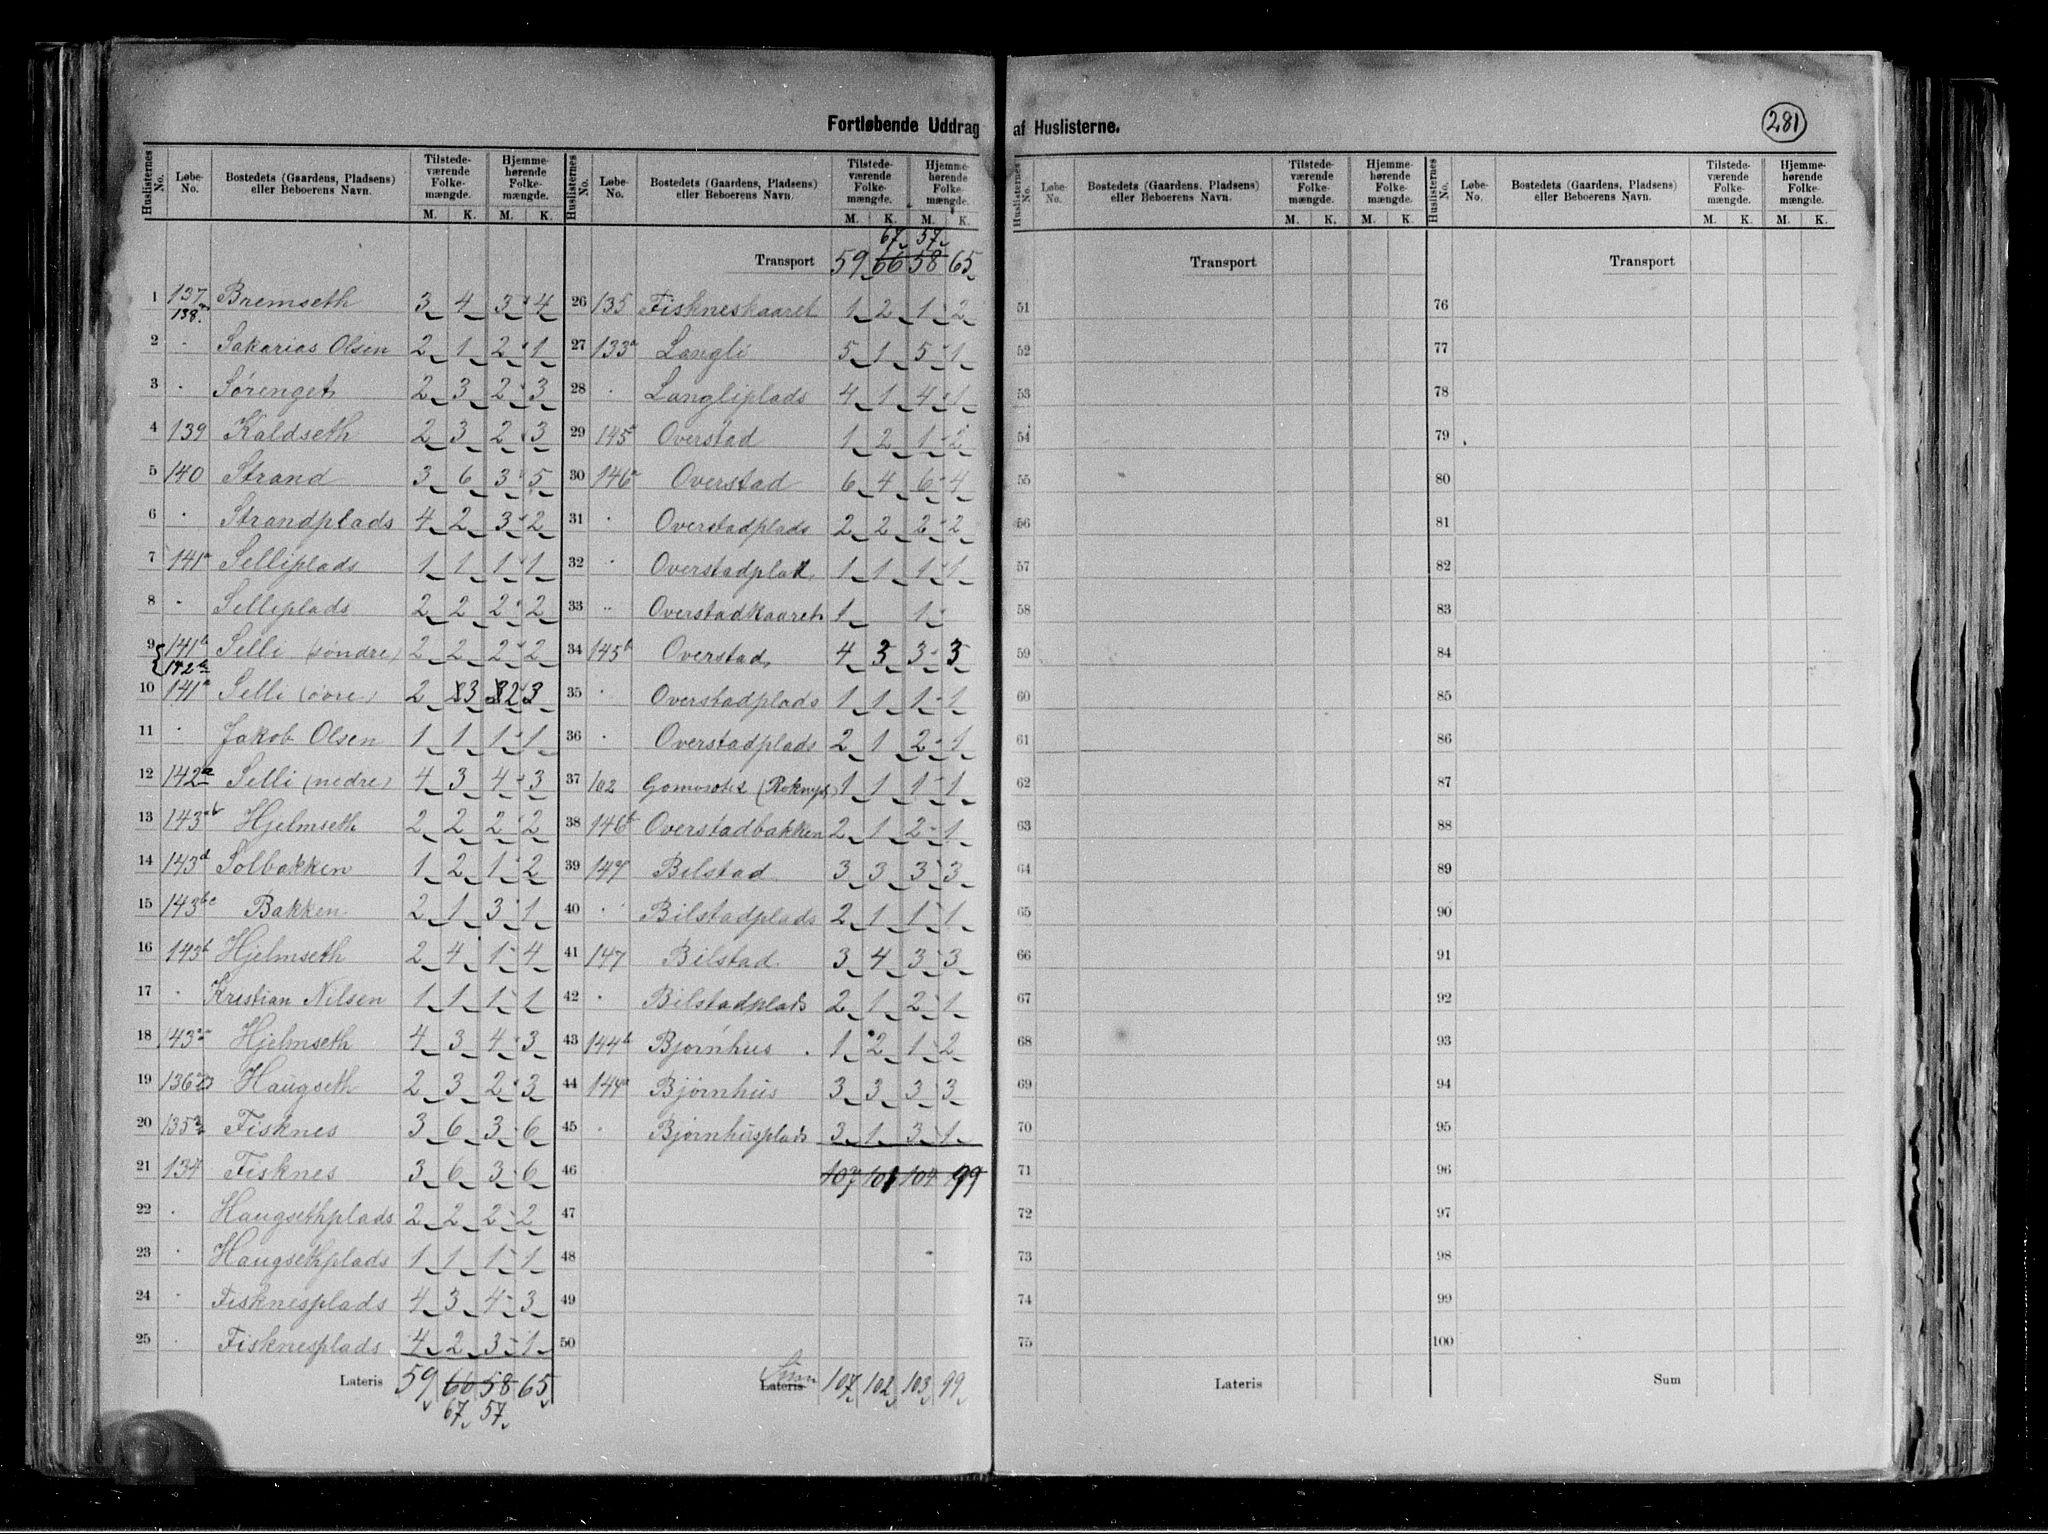 Fortløbende Uddrag af Huslisterne.
281
Huslisternes No. Løbe-No. Bostedets (Gaardens, Pladsens) eller Beboerens Navn. Tilstedeværende Folkemængde. M. K. Hjemmehørende Folkemængde. M. K.
1 137 138 Bremseth 3 4 3 4
2 " Sakarias Olsen 2 1 2 1
3 " Sørenget 2 3 2 3
4 139 Kaldseth 2 3 2 3
5 140 Strand 3 6 3 5
6 " Strandplads 4 2 3 2
7 141a Selliplads 1 1 1 1
8 " Selliplads 2 2 2 2
9 141b 142b Selli (søndre) 2 2 2 2
10 141a Selli (øvre) 2 3 2 3
11 " Jakob Olsen 1 1 1 1
12 142a Selli (nedre) 4 3 4 3
13 143b Hjelmseth 2 2 2 2
14 143d Solbakken 1 2 1 2
15 143bc Bakken 2 1 3 1
16 143b Hjelmseth 2 4 1 4
17 " Kristian Nilsen 1 1 1 1
18 143a Hjelmseth 4 3 4 3
19 136 Haugseth 2 3 2 3
20 135a Fisknes 3 6 3 6
21 134 Fisknes 3 6 3 6
22 " Haugsethplads 2 2 2 2
23 " Haugsethplads 1 1 1 1
24 " Fisknesplads 4 3 4 3
25 " Fisknesplads 4 2 3 1
Lateris 59 66 58 65
67 57
Huslisternes No. Løbe-No. Bostedets (Gaardens, Pladsens) eller Beboerens Navn. Tilstedeværende Folkemængde. M. K. Hjemmehørende Folkemængde. M. K.
67 57
Transport 59 66 58 65
26 135 Fiskneskaaret 1 2 1 2
27 133a Langli 5 1 5 1
28 " Langliplads 4 1 4 1
29 145 Overstad 1 2 1 2
30 146a Overstad 6 4 6 4
31 " Overstadplads 2 2 2 2
32 " Overstadplads 1 1 1 1
33 " Overstadkaaret 1 1
34 145b Overstad 4 3 3 3
35 " Overstadplads 1 1 1 1
36 " Overstadplads 2 1 2 1
37 102 1 1 1 1
38 146b Overstadbakken 2 1 2 1
39 147 Bilstad 3 3 3 3
40 " Bilstadplads 2 1 1 1
41 147 Bilstad 3 4 3 3
42 " Bilstadplads 2 1 2 1
43 144b Bjørnhus 1 2 1 2
44 144a Bjørnhus 3 3 3 3
45 " Bjørnhusplads 3 1 3 1
46 107 101 104 99
47
48
49
50
Sum Lateris 107 102 103 99
Huslisternes No. Løbe-No. Bostedets (Gaardens, Pladsens) eller Beboerens Navn. Tilstedeværende Folkemængde. M. K. Hjemmehørende Folkemængde. M. K.
Transport
51
52
53
54
55
56
57
58
59
60
61
62
63
64
65
66
67
68
69
70
71
72
73
74
75
Lateris
Huslisternes No. Løbe-No. Bostedets (Gaardens, Pladsens) eller Beboerens Navn. Tilstedeværende Folkemængde. M. K. Hjemmehørende Folkemængde. M. K.
Transport
76
77
78
79
80
81
82
83
84
85
86
87
88
89
90
91
92
93
94
95
96
97
98
99
100
Sum